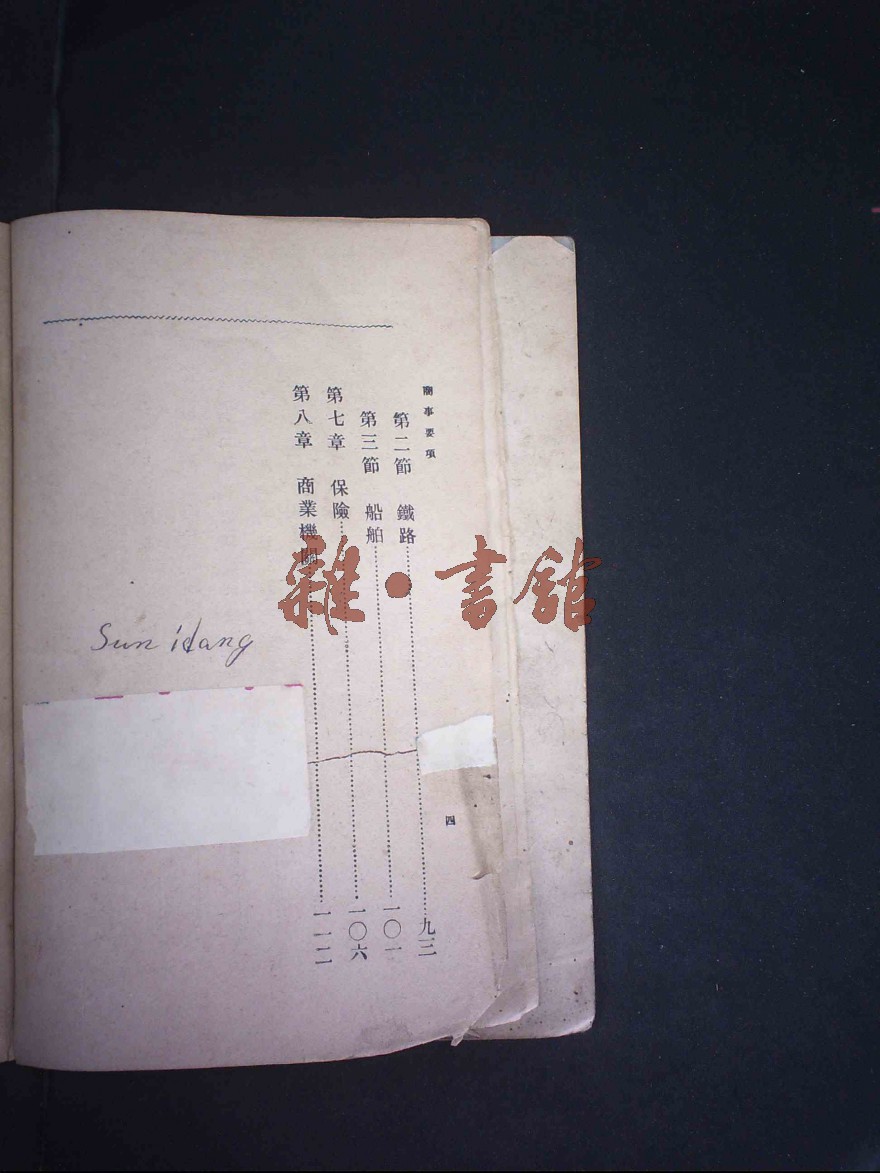 商事要項
第二節 鐵路……九三
第三節 船舶……一〇一
第七章 保險……一〇六
第八章 商業機關……一一二
四
Sun
雜·書館